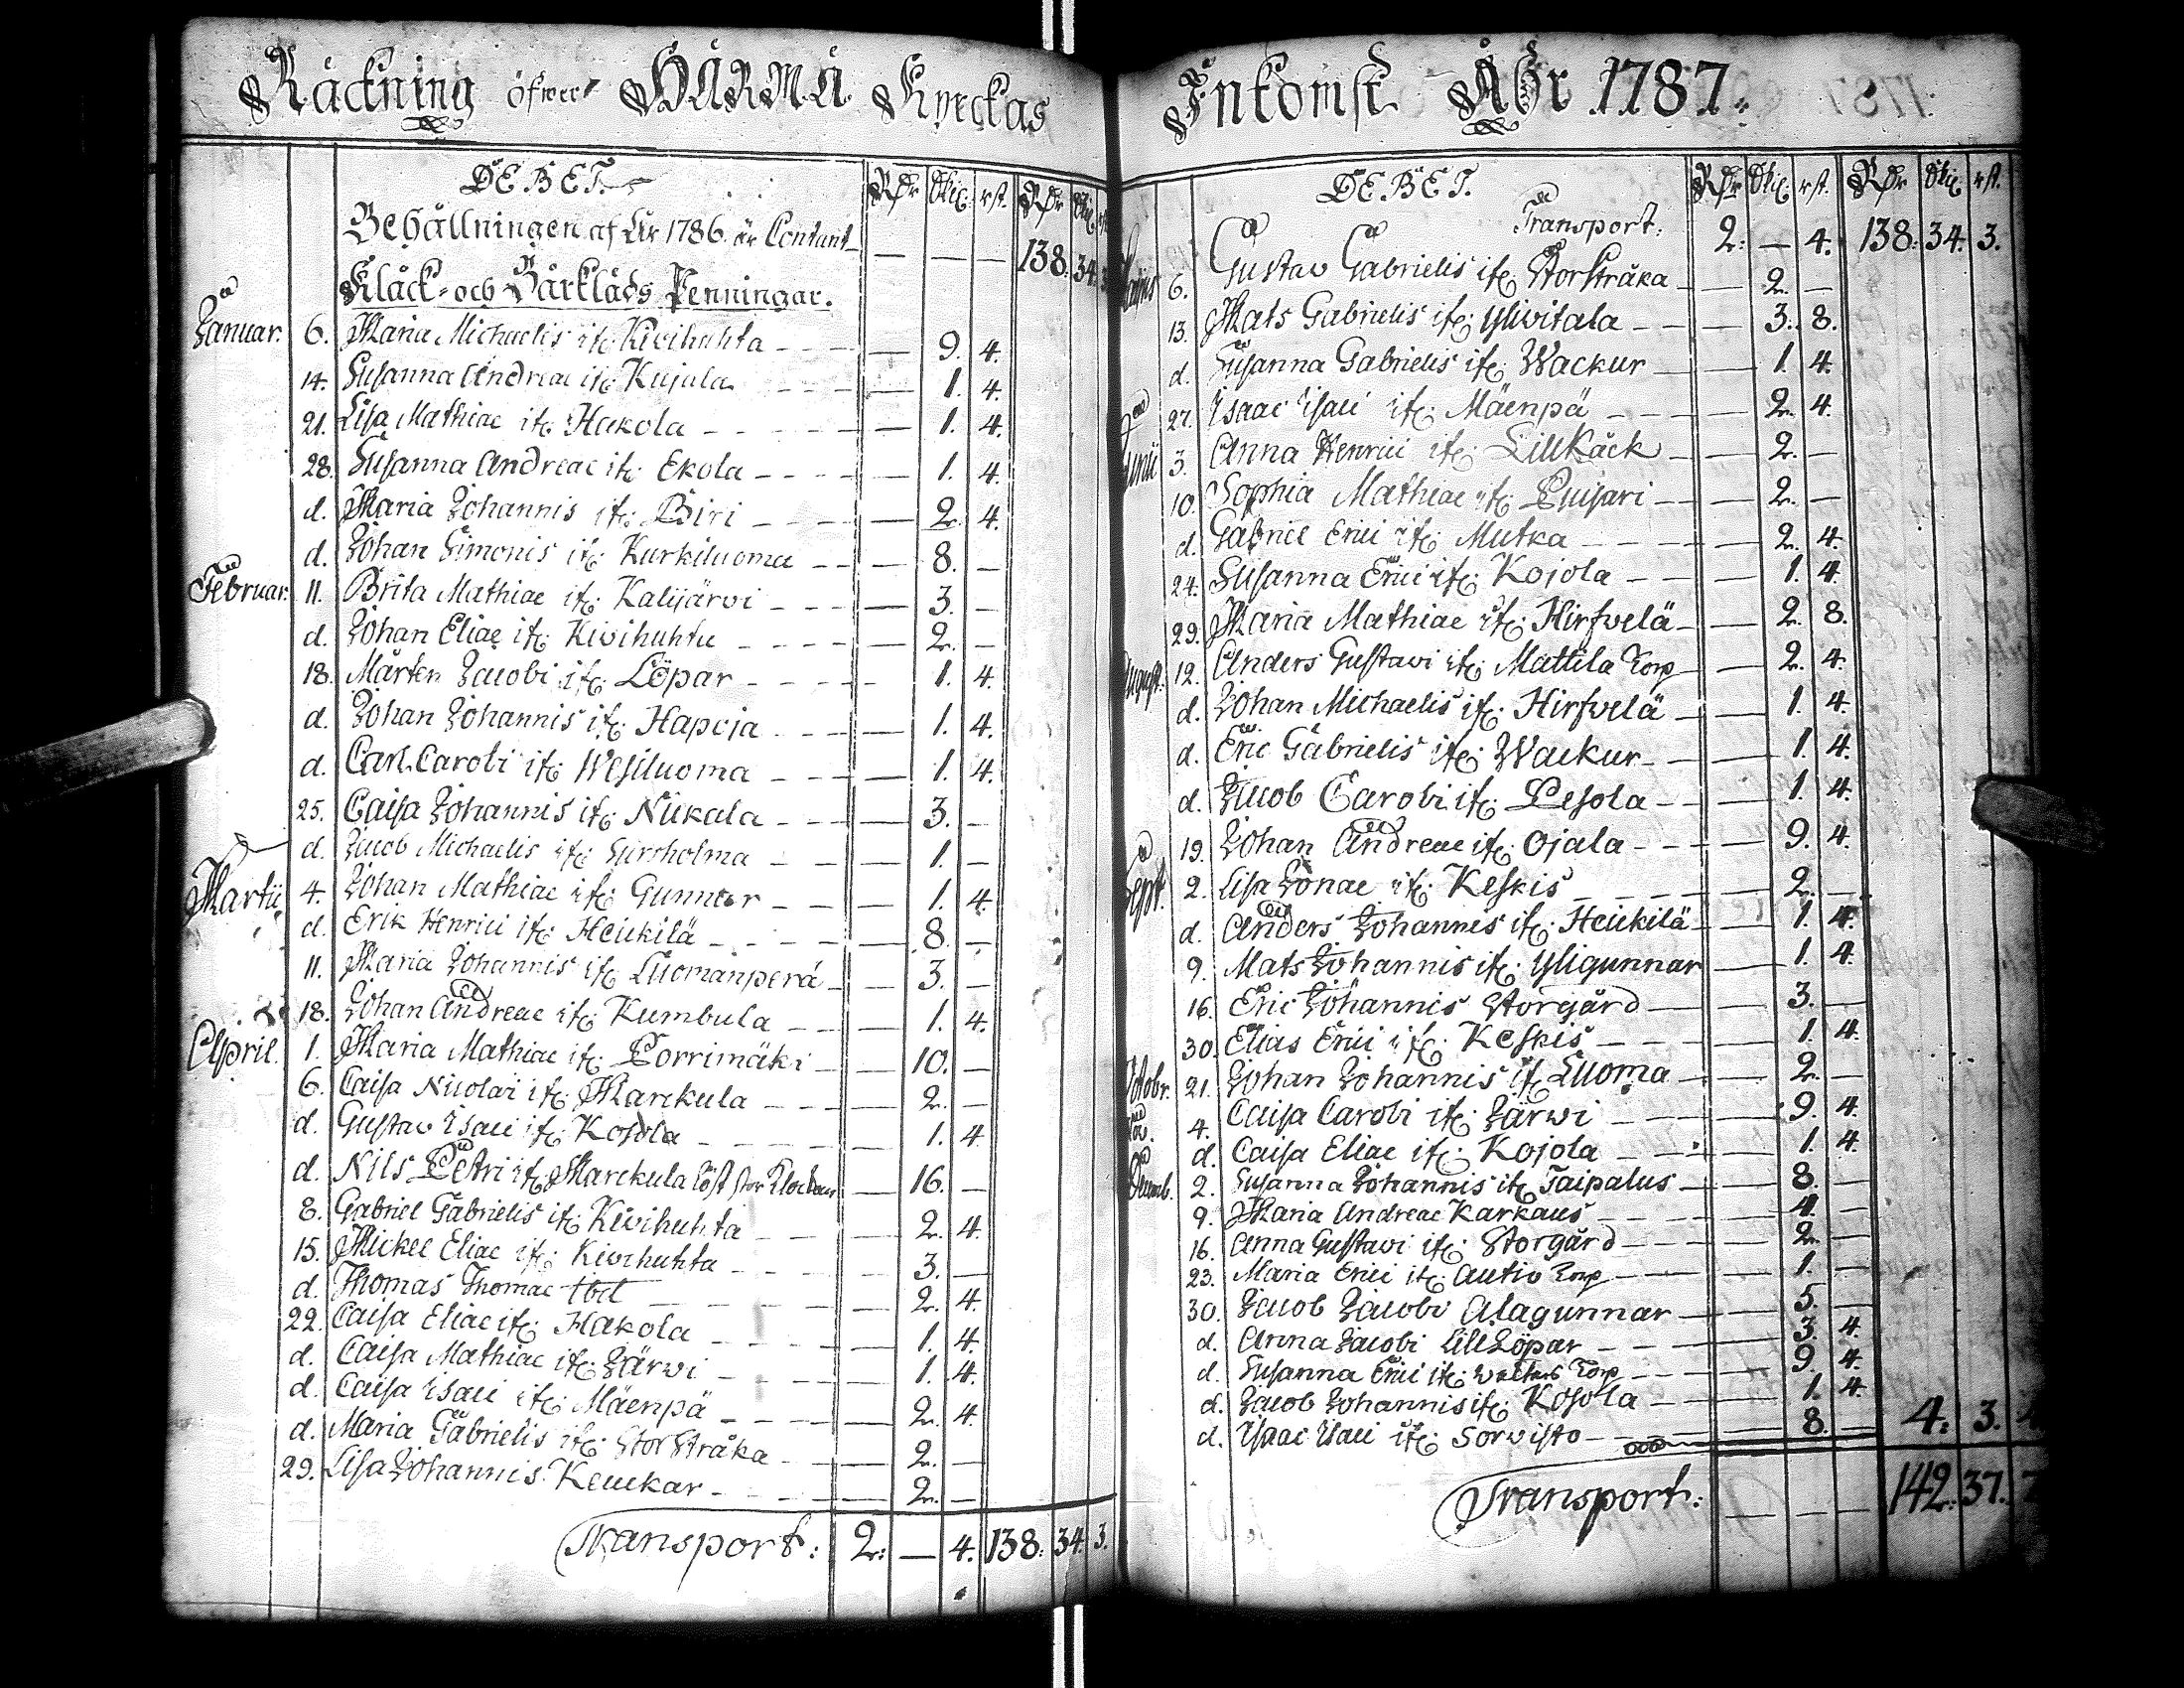 Räckning öfwer HÄRMÄ Kyrckas
DEBET. Rdr Skil: rst. Rdr Skil
Behållningen af År 1786. är Contant — — — 138: 34.
Kläck- och Bårkläds Penningar.
Januar: 6. Maria Michaelis it: Kivihuhta — 9. 4.
14. Susanna Andreae it: Kujala — 1. 4.
21. Lisa Mathiae it: Hakola — 1. 4.
28. Susanna Andreae it: Ekola — 1. 4.
d. Maria Johannis it: Biri — 2. 4.
d. Johan Simonis it: Kurkiluoma — 8. —
Februar: 11. Brita Mathiae it: Kalijärvi — 3. —
d. Johan Eliae it: Kivihuhta — 2. —
18. Mårten Jacobi it: Löpar — 1. 4.
d. Johan Johannis it: Hapoja — 1. 4.
d. Carl Caroli it: Wesiluoma — 1. 4.
25. Caisa Johannis it: Niikala — 3. —
d. Jacob Michaelis it: — 1. —
Martii 4. Johan Mathiae it: Gunnar — 1. 4.
d. Erik Henrici it: Heickilä — 8. —
11. Maria Johannis it: Luomanperä — 3. —
18. Johan Andreae it: Kumbula — 1. 4.
April. 1. Maria Mathiae it: Porrimäki — 10. —
6. Caisa Nicolai it: Marckula — 2. —
d. Gustav Isaci it: Kosola — 1. 4.
d. Nils Petri it: Marckula löst stor Klockan — 16. —
8. Gabriel Gabrielis it: Kivihuhta — 2. 4.
15. Mickel Eliae it: Kivihuhta — 3. —
d. Thomas Thomae — 2. 4.
22. Caisa Eliae it: Hakola — 1. 4.
d. Caisa Mathiae it: Järwi — 1. 4.
d. Caisa Isaci it: Mäenpä — 2. 4.
d. Maria Gabrielis it: Stor Stråka — 2. —
29. Lisa Johannis Keuckar — 2. —
Transport: 2: — 4. 138: 34. 3.
Inkomst Åhr 1787.
DEBET. Rdr Skil: rst. Rdr Skil rst.
Transport: 2: — 4. 138: 34. 3.
Majus 6. Gustav Gabrielis it: Storstråka — 2. —
13. Mats Gabrielis it: Ylivitala — 3. 8.
d. Susanna Gabrielis it: Wackur — 1. 4.
27. Isaac Isaci it: Mäenpä — 2. 4.
Junii 3. Anna Henrici it: Lillkäck — 2. —
10. Sophia Mathiae it: Puisari — 2. —
d. Gabriel Erici it: Mutka — 2. 4.
24. Susanna Erici it: Kojola — 1. 4.
29. Maria Mathiae it: Hirfvelä — 2. 8.
August: 12. Anders Gustavi it: Mattila Torp — 2. 4.
d. Johan Michaelis it: Hirfvelä — 1. 4.
d. Eric Gabrielis it: Wackur — 1. 4.
d. Jacob Caroli it: Pesola — 1. 4.
19. Johan Andreae it: Ojala — 9. 4.
Sept. 2. Lisa Jonae it: Keskis — 2. —
d. Anders Johannis it: Heickilä — 1. 4.
9. Mats Johannis it: Yligunnar — 1. 4.
16. Eric Johannis Storgård — 3. —
30. Elias Erici it: Keskis — 1. 4.
Octobr. 21. Johan Johannis it: Luoma — 2. —
Nov. 4. Caisa Caroli it: Järwi — 9. 4.
d. Caisa Eliae it: Kojola — 1. 4.
Decemb. 2. Susanna Johannis it: Taipalus — 8. —
9. Maria Andreae Karkaus — 4. —
16. Anna Gustavi it: Storgård — 2. —
23. Maria Erici it: Autio Torp — 1. —
30. Jacob Jacobi Alagunnar — 5. —
d. Anna Jacobi Lill Löpar — 3. 4.
d. Susanna Erici it: Torp — 9. 4.
d. Jacob Johannis it: Kosola — 1. 4.
d. Isaac Isaci it: Sorvisto — 8. — 4: 3.
Transport: — — 142: 37. 7